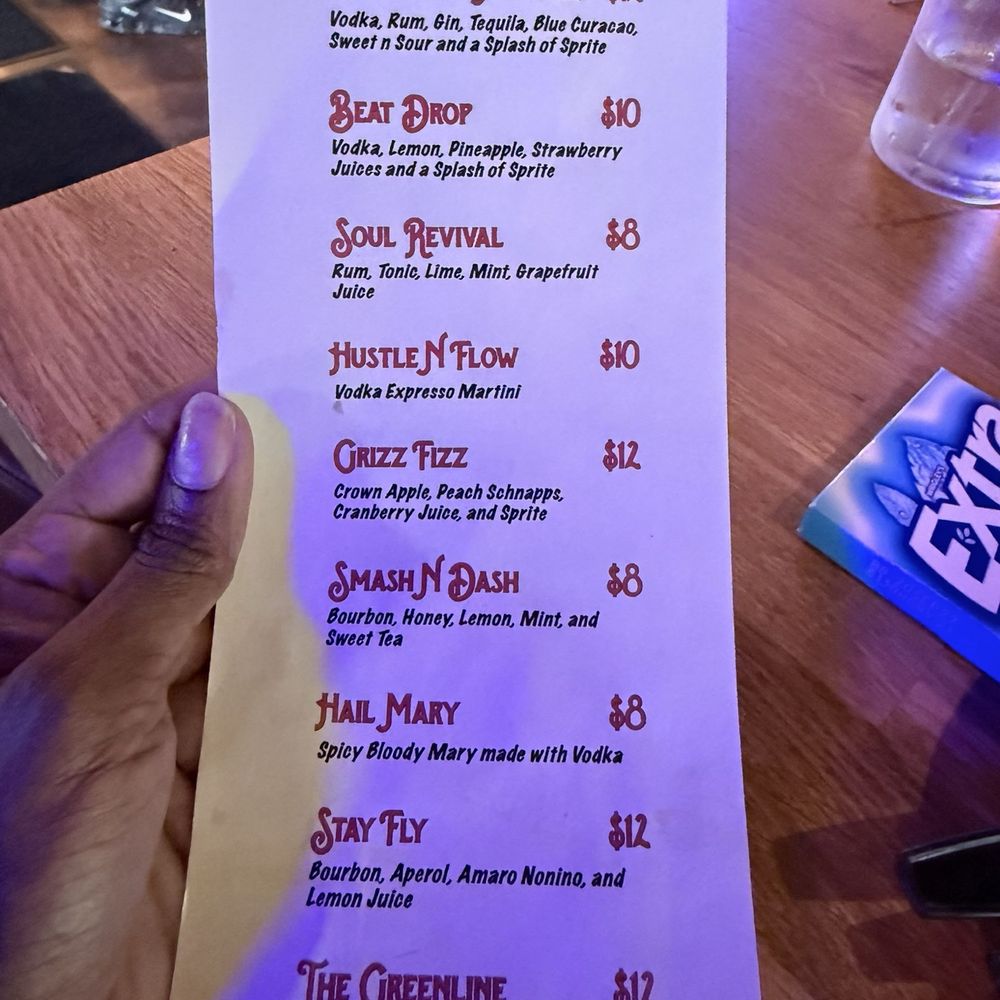 Vodka, Rum, Gin, Tequila, Blue Curacao,
Sweet n Sour and a Splash of Sprite
Beat Drop $10
Vodka, Lemon, Pineapple, Strawberry
Juices and a Splash of Sprite
Soul Revival $8
Rum, Tonic, Lime, Mint, Grapefruit
Juice
Hustle N Flow $10
Vodka Expresso Martini
Grizz Fizz $12
Crown Apple, Peach Schnapps,
Cranberry Juice, and Sprite
Smash N Dash $8
Bourbon, Honey, Lemon, Mint, and
Sweet Tea
Hail Mary $8
Spicy Bloody Mary made with Vodka
Stay Fly $12
Bourbon, Aperol, Amaro Nonino, and
Lemon Juice
The Greenline $12
Extra